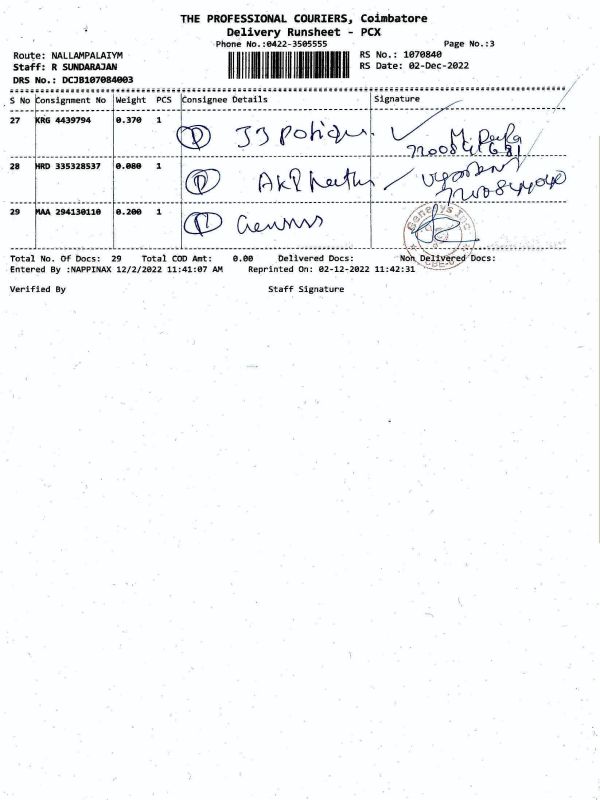 THE PROFESSIONAL COURIERS, Coimbatore
Delivery Runsheet - PCX
Phone No.:0422-3505555 Page No.:3
Route: NALLAMPALAIYM RS No.: 1070840
Staff: R SUNDARAJAN RS Date: 02-Dec-2022
DRS No.: DCJB107084003
S No Consignment No Weight PCS Consignee Details Signature
27 KRG 4439794 0.370 1
28 HRD 335328537 0.080 1
29 MAA 294130110 0.200 1
Total No. Of Docs: 29 Total COD Amt: 0.00 Delivered Docs: Non Delivered Docs:
Entered By :NAPPINAX 12/2/2022 11:41:07 AM Reprinted On: 02-12-2022 11:42:31
Verified By Staff Signature